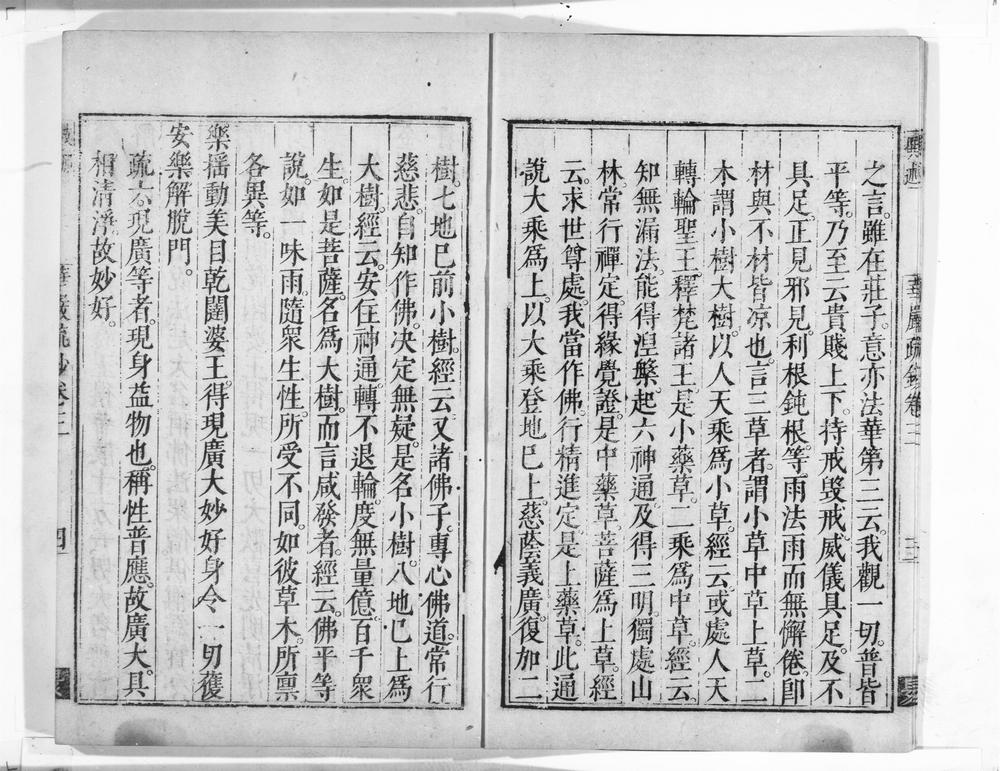 之言。雖在莊子。意亦法華第三云。我觀一切。普皆
平等。乃至云貴賤上下。持戒毀戒。威儀具足。及不
具足。正見邪見。利根鈍根等雨法雨而無懈倦。即
材與不材皆凉也。言三草者。謂小草中草上草。二
木謂小樹大樹。以人天乘爲小草。經云。或處人天
轉輪聖王。釋梵諸王。是小藥草。二乘爲中草。經云
知無漏法。能得涅槃。起六神通。及得三明。獨處山
林。常行禪定。得緣覺證。是中藥草。菩薩爲上草。經
云。求世尊處。我當作佛。行精進定。是上藥草。此通
說大乘爲上。以大乘登地已上。慈蔭義廣。復加二
樹。七地已前小樹。經云。又諸佛子。專心佛道。常行
慈悲。自知作佛。决定無疑。是名小樹。八地已上爲
大樹。經云。安住神通。轉不退輪。度無量億。百千衆
生。如是菩薩。名爲大樹。而言咸發者。經云。佛平等
說。如一味雨。隨衆生性。所受不同。如彼草木。所禀
各異等。
樂揺動美目乾闥婆王。得現廣大妙好身令一切獲
安樂解脫門。
疏六。現廣等者。現身益物也。稱性普應。故廣大。具
相清淨。故妙好。
華嚴疏鈔卷二
華嚴疏鈔卷二
四